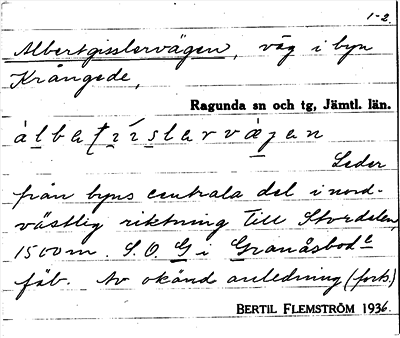 1-2.
Albertgisslervägen, väg i byn
Krångede,
Ragunda sn och tg, Jämtl. län.
Leder
från byns centrala del i nord-
västlig riktning till Stordelen,
1500 m. S.O. G i Granåsbod
fäb. Av okänd anledning (forts.)
BERTIL FLEMSTRÖM 1936.